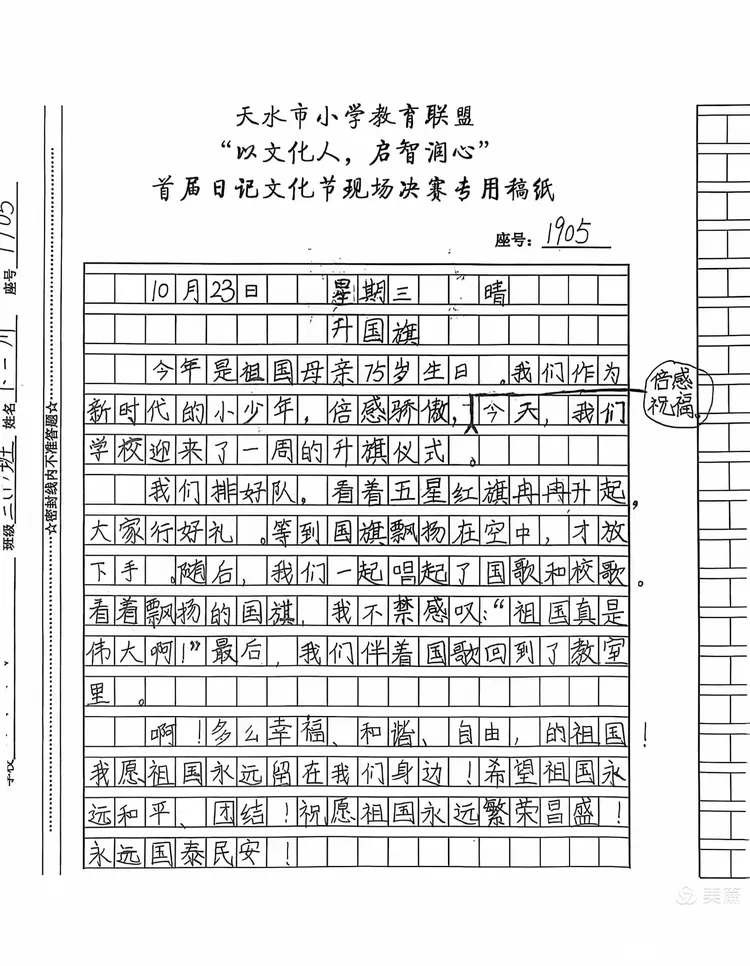 天水市小学教育联盟
“以文化人，启智润心”
首届日记文化节现场决赛专用稿纸
座号：1905
10月23日 星期三 晴
升国旗
今年是祖国母亲75岁生日。我们作为
新时代的小少年，倍感骄傲，今天，我们
倍感
祝福。
学校迎来了一周的升旗仪式。
我们排好队，看着五星红旗冉冉升起，
大家行好礼。等到国旗飘扬在空中，才放
下手。随后，我们一起唱起了国歌和校歌。
看着飘扬的国旗，我不禁感叹：“祖国真是
伟大啊！”最后，我们伴着国歌回到了教室
里。
啊！多么幸福、和谐、自由，的祖国！
我愿祖国永远留在我们身边！希望祖国永
远和平、团结！祝愿祖国永远繁荣昌盛！
永远国泰民安！
座号 1905
姓名
班级
学校
☆密封线内不准答题☆
美篇